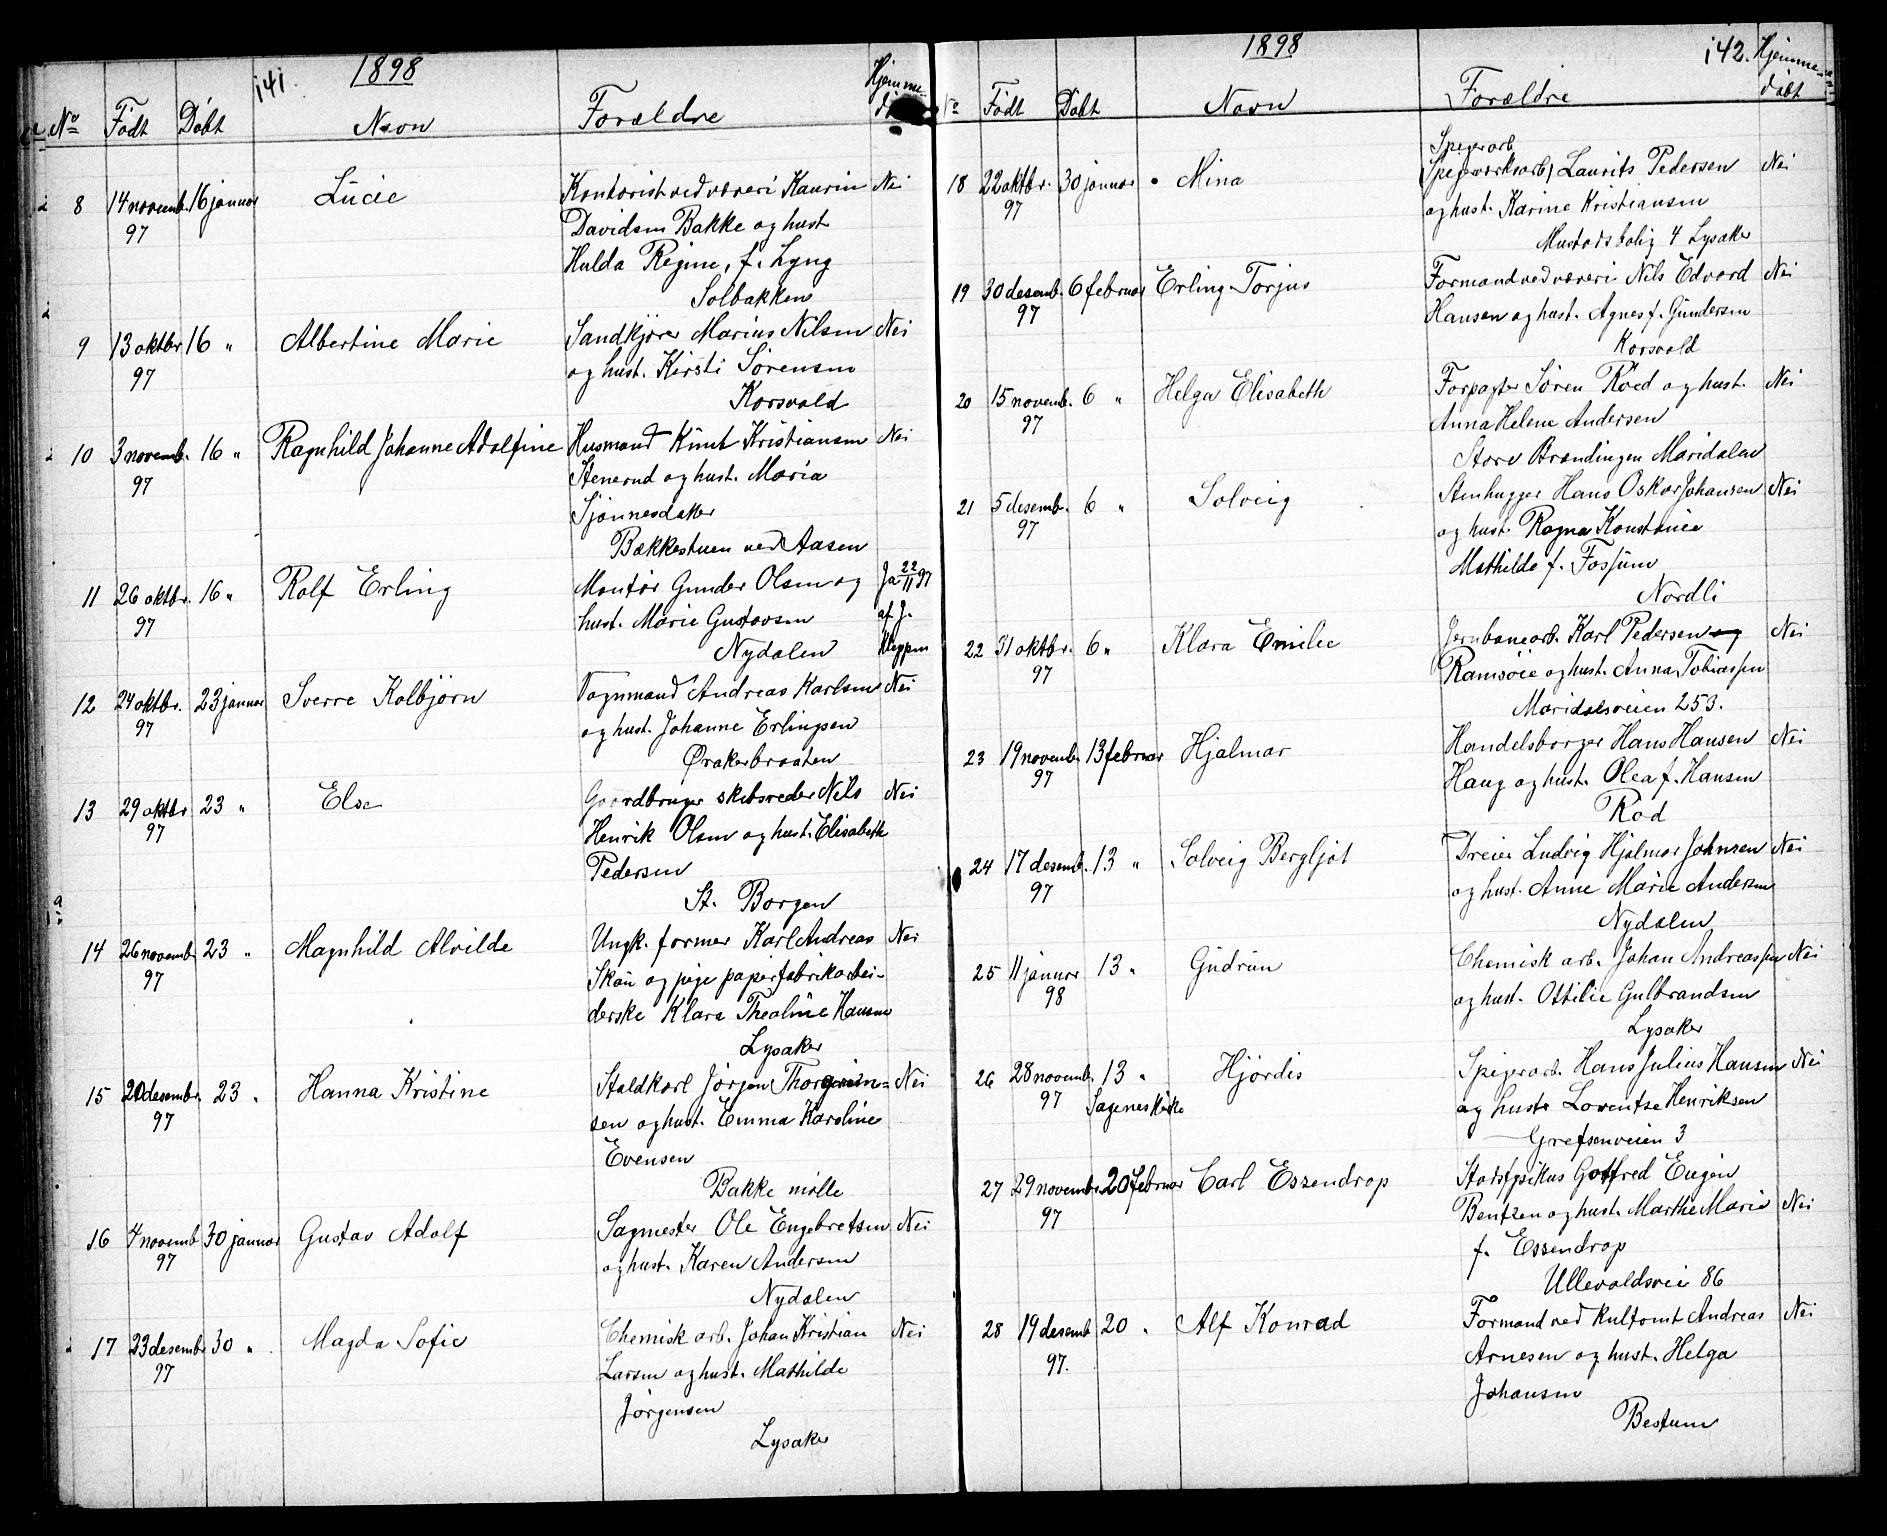 141.
1898
Hjemme-
No Födt Döbt Navn Forældre
8 14 novemb. 16 januar Lucie Kontorist ved væveri Kaurin Nei
97 Davidsen Bakke og hust
Hulda Regine, f. Lyng
Solbakken
9 13 oktbr 16 " Albertine Marie Sandkjörer Marius Nilsen Nei
97 og hust. Kirsti Sörensen
Korsvold
10 3 novemb. 16 " Ragnhild Johanne Adolfine Husmand Knut Kristiansen Nei
97 Stenerud og hust. Maria
Sjönnesdatter
Bækkestuen ved Aasen
11 26 oktbr. 16 " Rolf Erling Montör Gunder Olsen og Ja 22/11 97
97 hust. Marie Gustavsen af J.
Nydalen Kleppen
12 24 oktbr. 23 januar Sverre Kolbjörn Vognmand Andreas Karlsen Nei
97 og hust. Johanne Erlingsen
Ørakerbraaten
13 29 oktbr 23 " Else Gaardbruger skibsreder Nils Nei
97 Henrik Olsen og hust. Elisabeth
Pedersen
St. Borgen
14 26 novemb 23 " Magnhild Alvilde Ungk. former Karl Andreas Nei
97 Skau og pige papirfabrikarbei-
derske Klara Thealine Hansen
Lysaker
15 20 desembr. 23 " Hanna Kristine Staldkarl Jörgen Thorgrim= Nei
97 sen og hust. Emma Karoline
Evensen
Bakke mölle
16 4 novemb 30 januar Gustav Adolf Sagmester Ole Engebretsen Nei
97 og hust. Karen Andersen
Nydalen
17 23 desembr 30 " Magda Sofie Chemisk arb. Johan Kristian Nei
97 Larsen og hust. Mathilde
Jörgensen
Lysaker
1898
142. Hjemme-
döbt
No Födt Döbt Navn Forældre
Spigerarb
18 22 oktbr. 30 januar Mina Spigerverksarb. Laurits Pedersen Nei
97 og hust. Karine Kristiansen
Mustads bolig 4 Lysaker
19 30 desemb. 6 februar Erling Torjus Formand ved væveri Nils Edvard Nei
97 Hansen og hust. Agnes f. Gundersen
Korsvold
20 15 novemb. 6 " Helga Elisabeth Forpagter Sören Röed og hust. Nei
97 Anna Helene Andersen
Store Brændingen Maridalen
21 5 desemb. 6 " Solveig Stenhugger Hans Oskar Johansen Nei
97 og hust. Ragna Konstance
Mathilde f. Fossum
Nordli
22 31 oktbr. 6 " Klara Emilie Jernbanearb. Karl Pedersen og Nei
97 Ramsöie og hust. Anna Tobiassen
Maridalsveien 253.
23 19 novembr 13 februar Hjalmar Handelsborger Hans Hansen Nei
97 Haug og hust. Olea f. Hansen
Röd
24 17 desemb. 13 " Solveig Bergljot Dreier Ludvig Hjalmar Johnsen Nei
97 og hust. Anne Marie Andersen
Nydalen
25 11 januar 13 " Gudrun Chemisk arb. Johan Andreassen Nei
98 og hust. Ottilie Gulbrandsen
Lysaker
26 28 novemb 13 " Hjördis Spigerarb. Hans Julius Hansen Nei
97 Sagenes Kirke og hust. Lorentse Henriksen
Grefsenveien 3
27 29 novembr 20 februar Carl Essendrop Stadsfysikus Gotfred Eugen
97 Bentzen og hust. Marthe Marie Nei
f. Essendrop
Ullevoldsvei 86
28 19 desemb 20 " Alf Konrad Formand ved Andreas Nei
97. Arnesen og hust. Helga
Johansen
Bestum